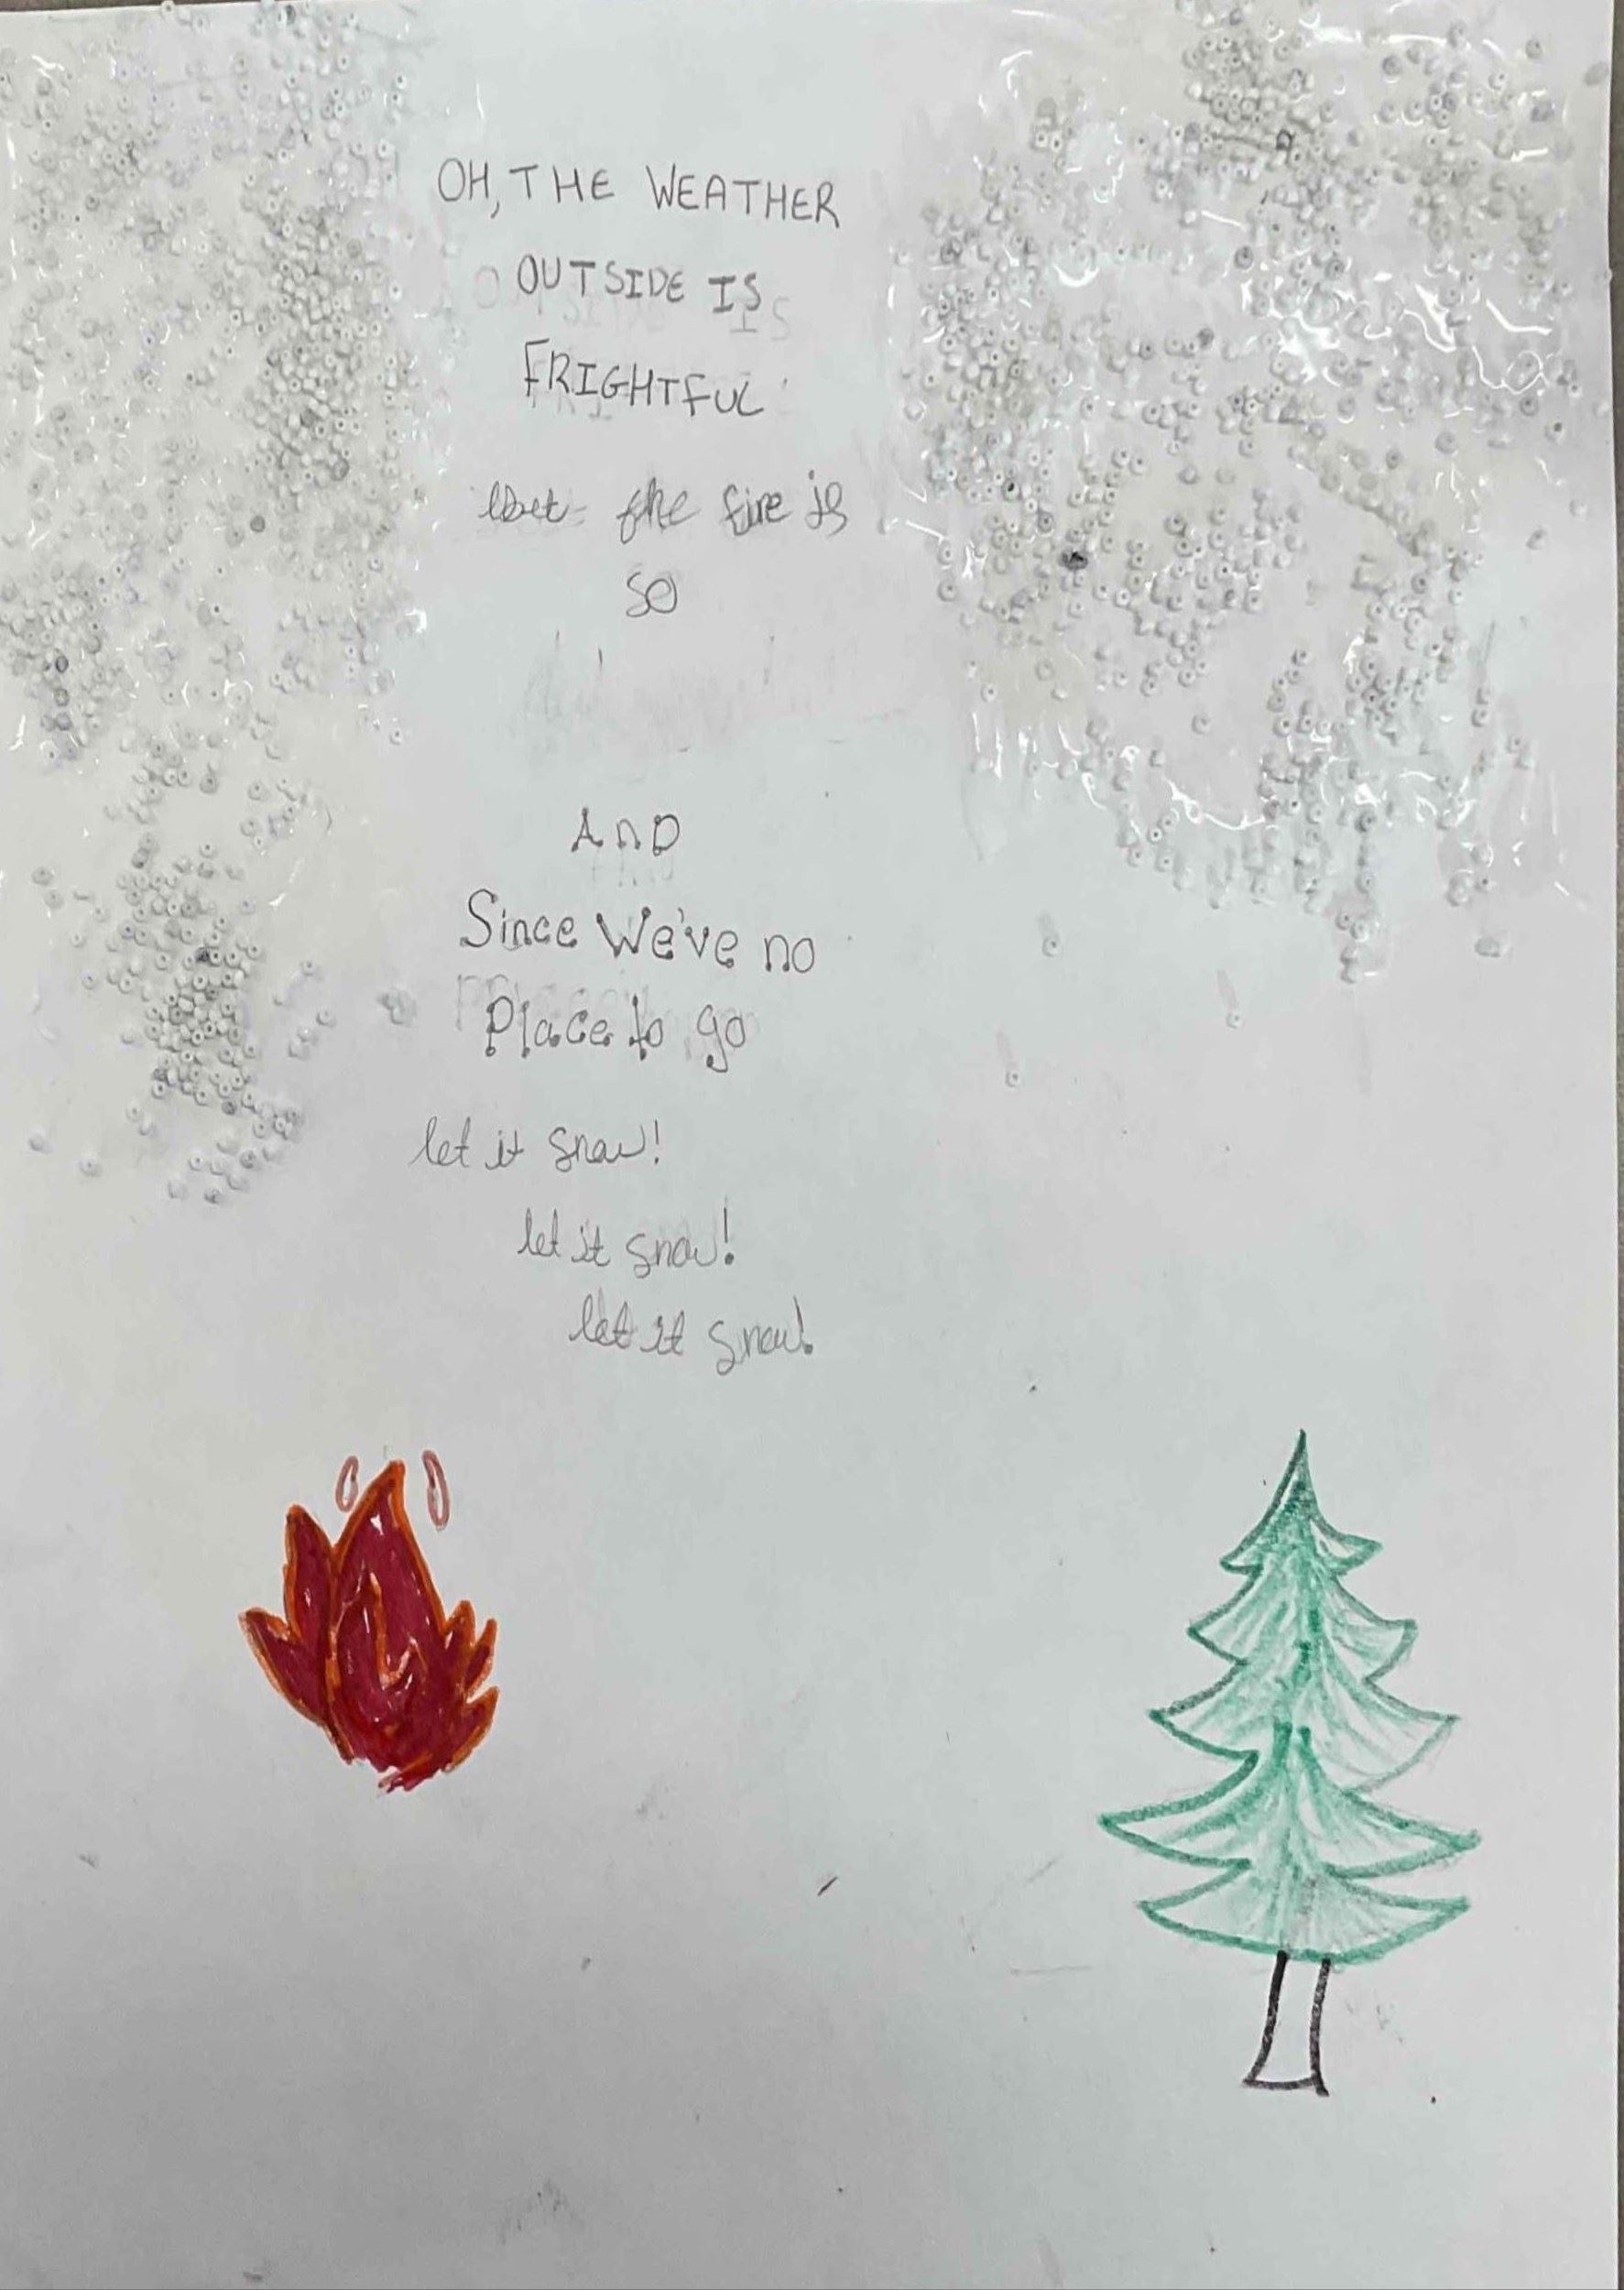 OH, THE WEATHER
OUTSIDE IS
FRIGHTFUL
but the fire is
so
AnD
Since We've no
Place to go
let it snow!
let it snow!
let it snow!